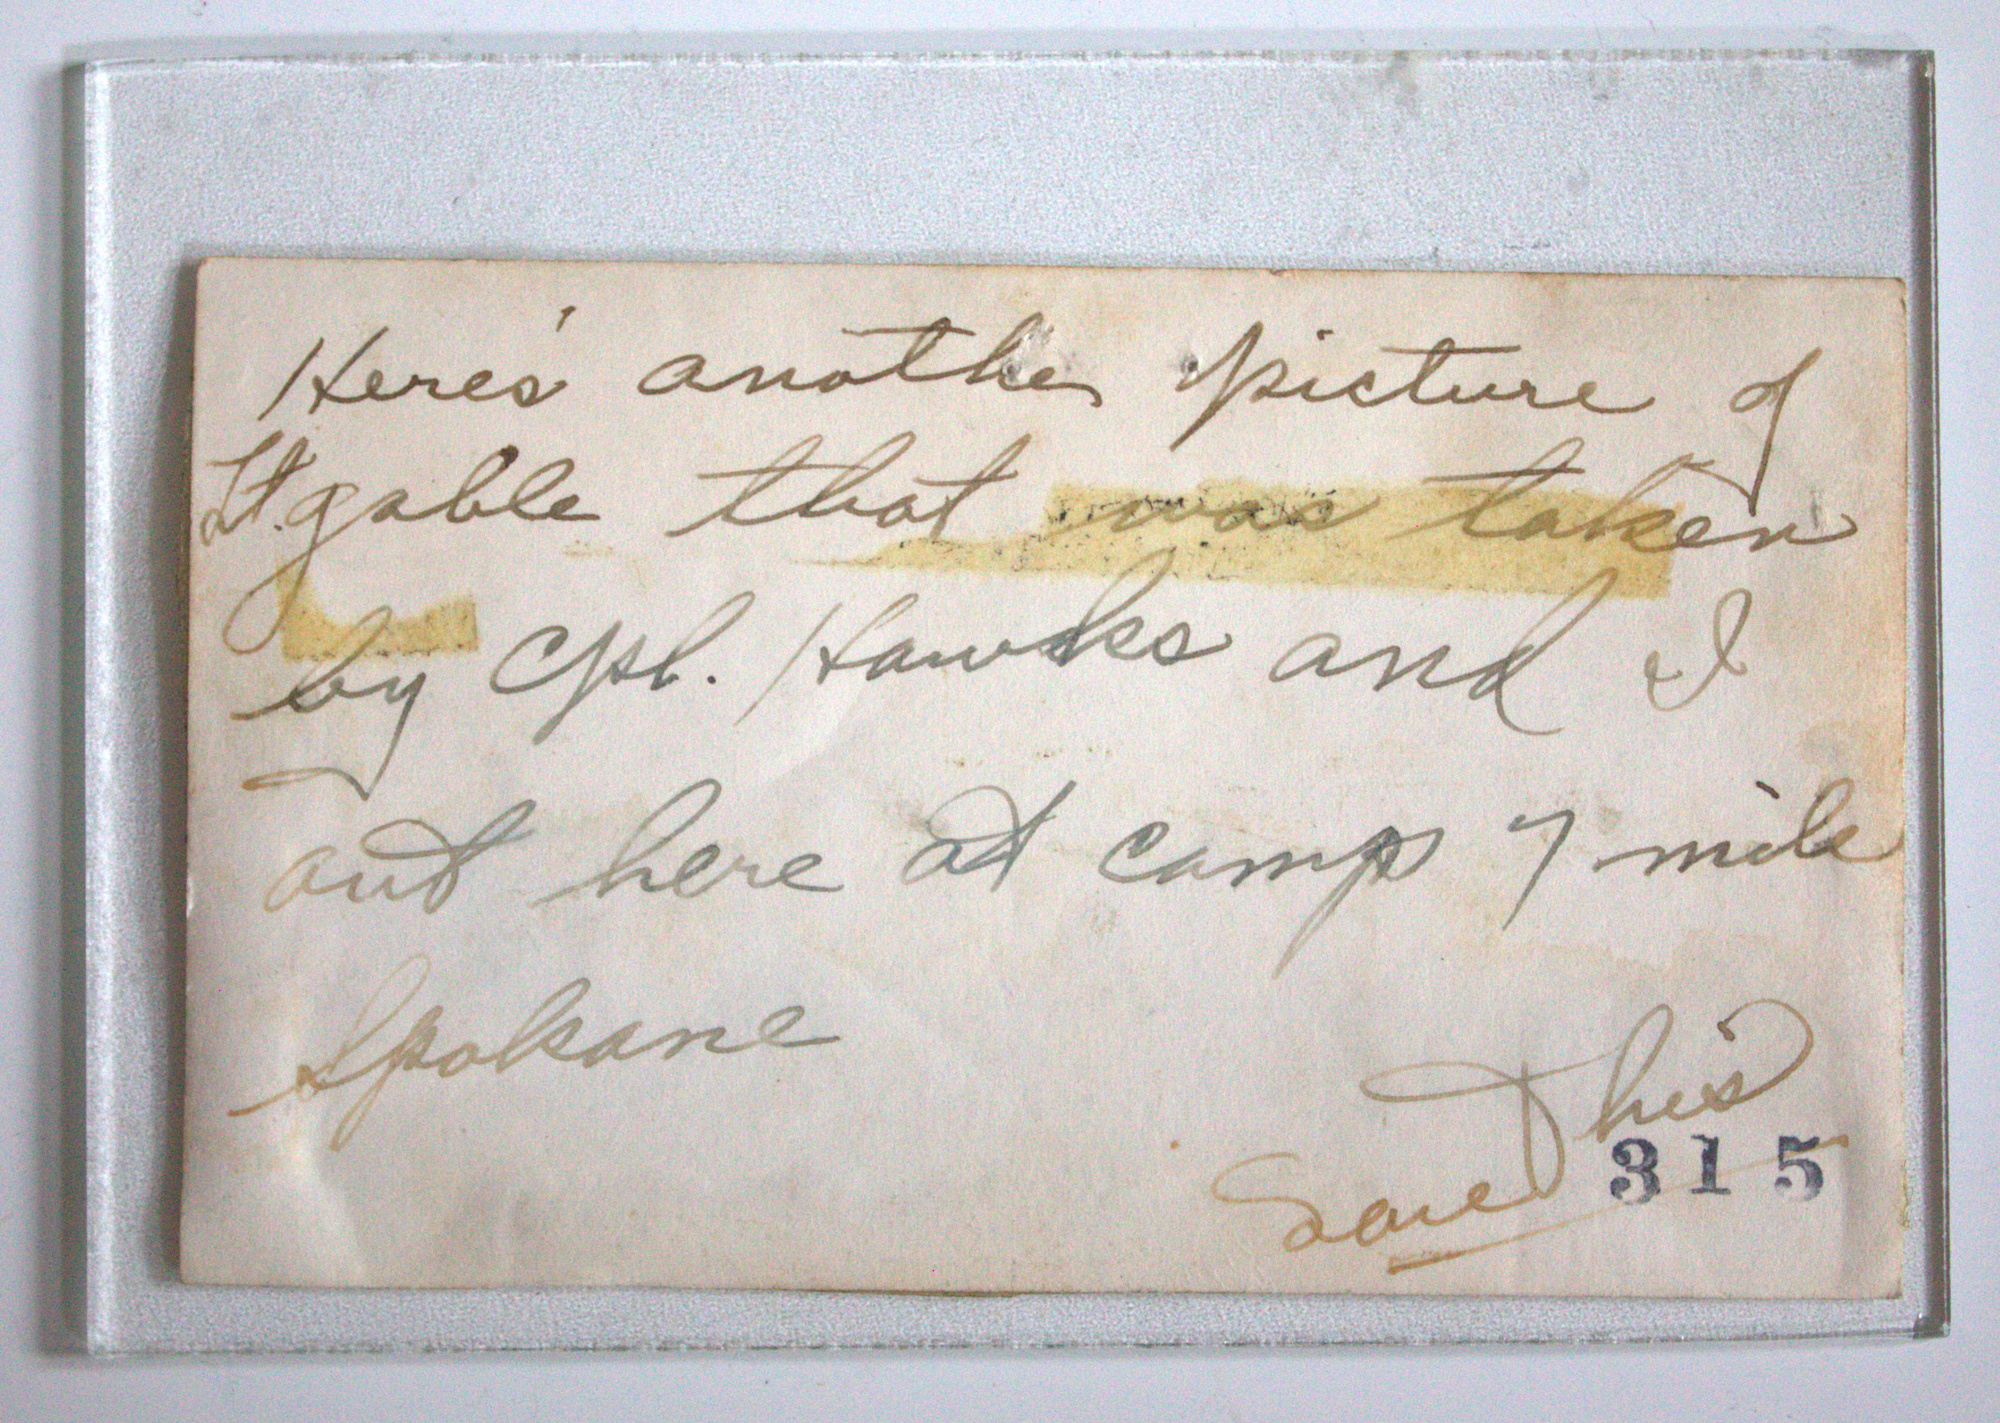 Here's another picture of
Lt. gable that was taken
by Cpl. Hawks and I
out here at camp 7 mile
Spokane
This
Save
315